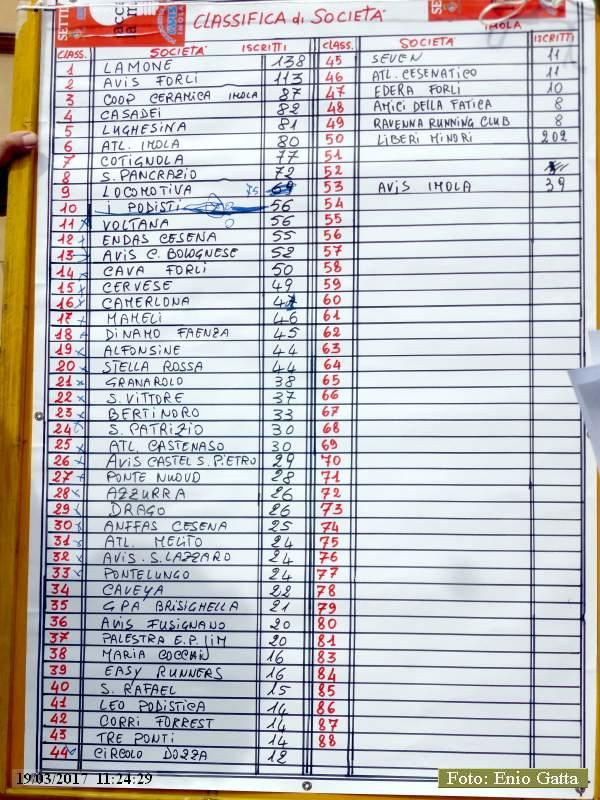 CLASSIFICA di SOCIETA'
IMOLA
CLASS. SOCIETA' ISCRITTI
1 LAMONE 138
2 AVIS FORLI 113
3 COOP CERAMICA IMOLA 87
4 CASADEI 82
5 LUGHESINA 81
6 ATL. IMOLA 80
7 COTIGNOLA 77
8 S. PANCRAZIO 72
9 LOCOMOTIVA 75 69
10 I PODISTI 56
11 VOLTANA 56
12 ENDAS CESENA 55
13 AVIS C. BOLOGNESE 52
14 CAVA FORLI 50
15 CERVESE 49
16 CAMERLONA
17 MAMELI 46
18 DINAMO FAENZA 45
19 ALFONSINE 44
20 STELLA ROSSA 44
21 GRANAROLO 38
22 S. VITTORE 37
23 BERTINORO 33
24 S. PATRIZIO 30
25 ATL. CASTENASO 30
26 AVIS CASTEL S. PIETRO 29
27 PONTE NUOVO 28
28 AZZURRA 26
29 DRAGO 26
30 ANFFAS CESENA 25
31 ATL. MELITO 24
32 AVIS. S. LAZZARO 24
33 PONTELUNGO 24
34 CAVEYA 22
35 GPA BRISIGHELLA 21
36 AVIS FUSIGNANO 20
37 PALESTRA E.P. LIM 20
38 MARIA COCCHI 16
39 EASY RUNNERS 16
40 S. RAFAEL 15
41 LEO PODISTICA 14
42 CORRI FORREST 14
43 TRE PONTI 14
44 CIRCOLO DOZZA 12
CLASS. SOCIETA' ISCRITTI
45 SEVEN 11
46 ATL. CESENATICO 11
47 EDERA FORLI 10
48 AMICI DELLA FATICA 8
49 RAVENNA RUNNING CLUB 8
50 LIBERI MINORI 202
51
52
53 AVIS IMOLA 39
54
55
56
57
58
59
60
61
62
63
64
65
66
67
68
69
70
71
72
73
74
75
76
77
78
79
80
81
83
84
85
86
87
88
19/03/2017 11:24:29
Foto: Enio Gatta